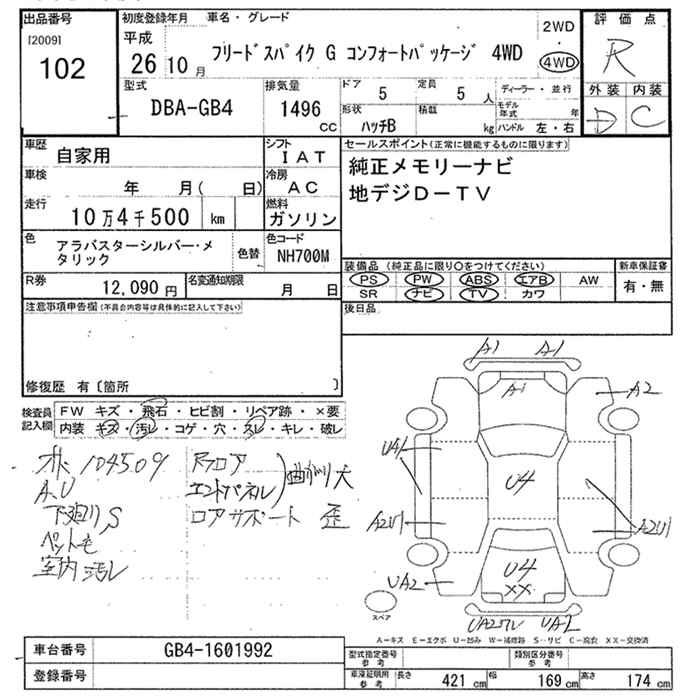 出品番号
[2009]
102
初度登録年月
平成
26 10 月
車名・グレード
フリードスパイク G コンフォートパッケージ 4WD
2WD
・
4WD
評価点
R
外装 内装
D C
型式
DBA-GB4
排気量
1496
CC
ドア
5
定員
5 人
形状
ハッチB
積載
kg
ディーラー・並行
モデル年式 年
ハンドル 左・右
車歴
自家用
シフト
IAT
車検
年 月( 日)
冷房
AC
走行
10万4千500 km
燃料
ガソリン
色
アラバスターシルバー・メタリック
色替
色コード
NH700M
R券
12,090 円
名変通知期限
月 日
セールスポイント(正常に機能するものに限ります)
純正メモリーナビ
地デジD-TV
装備品 (純正品に限り〇をつけてください)
PS PW ABS エアB AW
SR ナビ TV カワ
新車保証書
有・無
後日品
注意事項申告欄(不具合内容等は具体的に記入して下さい)
修復歴 有〔箇所 〕
検査員記入欄
FW キズ・飛石・ヒビ割・リペア跡・×要
内装 キズ・汚レ・コゲ・穴・スレ・キレ・破レ
104509
A.U
下廻りS
ペット毛
室内汚レ
Rフロア
エンドパネル
曲がり大
ロアサポート 歪
A1 A1
A1
A2
UA1
U4
A2U1
A2U1
UA2
U4
XX
UA2ワレ UA2
スペア
A-キズ E-エクボ U-凹み W-補修跡 S-サビ C-腐食 XX-交換済
車台番号
GB4-1601992
登録番号
型式指定番号
参考
類別区分番号
参考
車庫証明用
参考
長さ 421 cm 幅 169 cm 高さ 174 cm